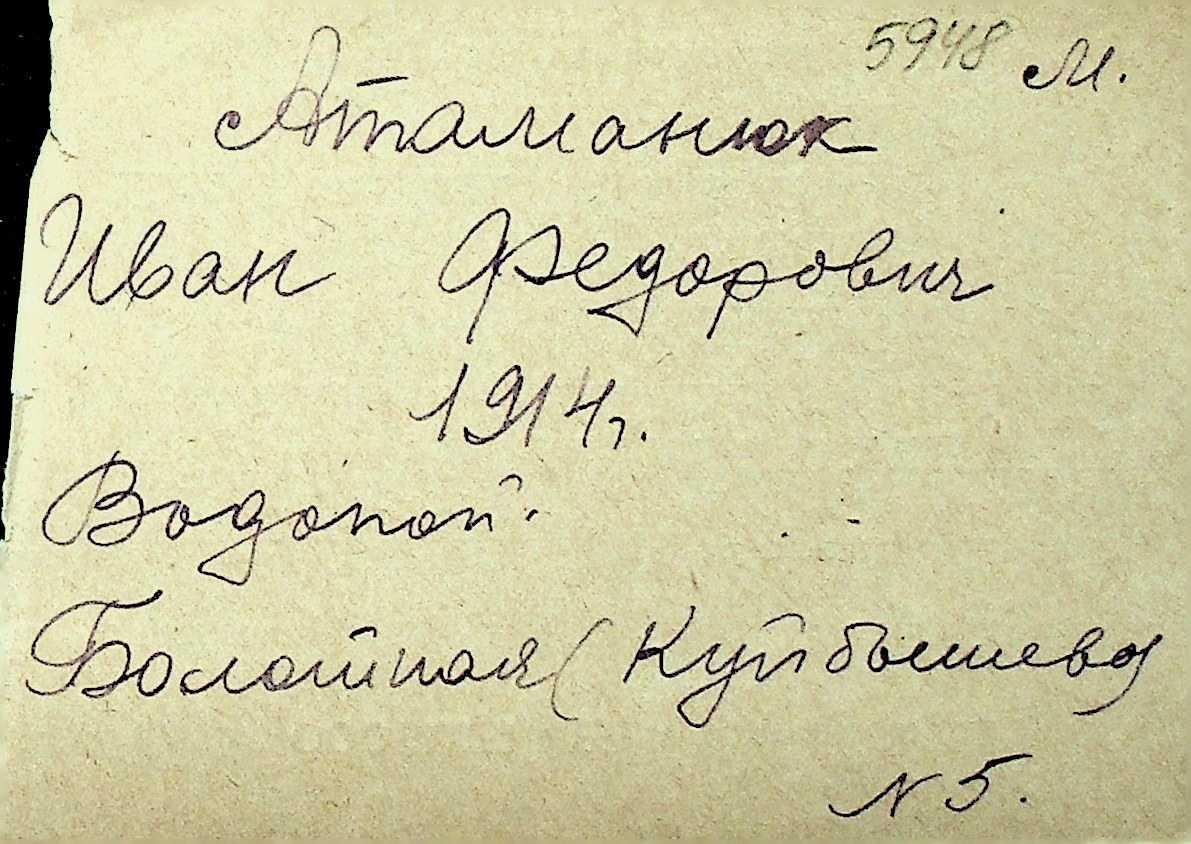 5948 М.
Атаманюк
Иван Федорович
1914г.
Водопой.
Болотная (Куйбышева)
N 5.